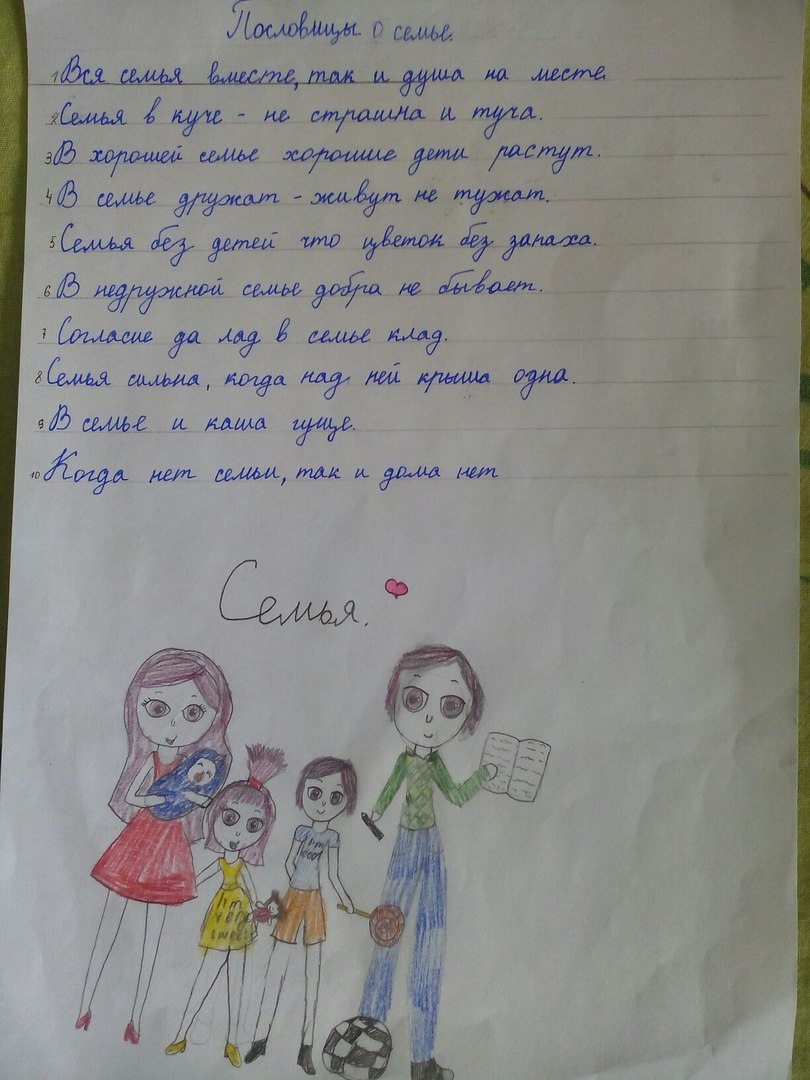 Пословицы о семье.
1 Вся семья вместе, так и душа на месте.
2 Семья в куче - не страшна и туча.
3 В хорошей семье хорошие дети растут.
4 В семье дружат - живут не тужат.
5 Семья без детей что цветок без запаха.
6 В недружной семье добра не бывает.
7 Согласие да лад в семье клад.
8 Семья сильна, когда над ней крыша одна.
9 В семье и каша гуще.
10 Когда нет семьи, так и дома нет
Семья.
I'm
cool
I'm
very
sweet